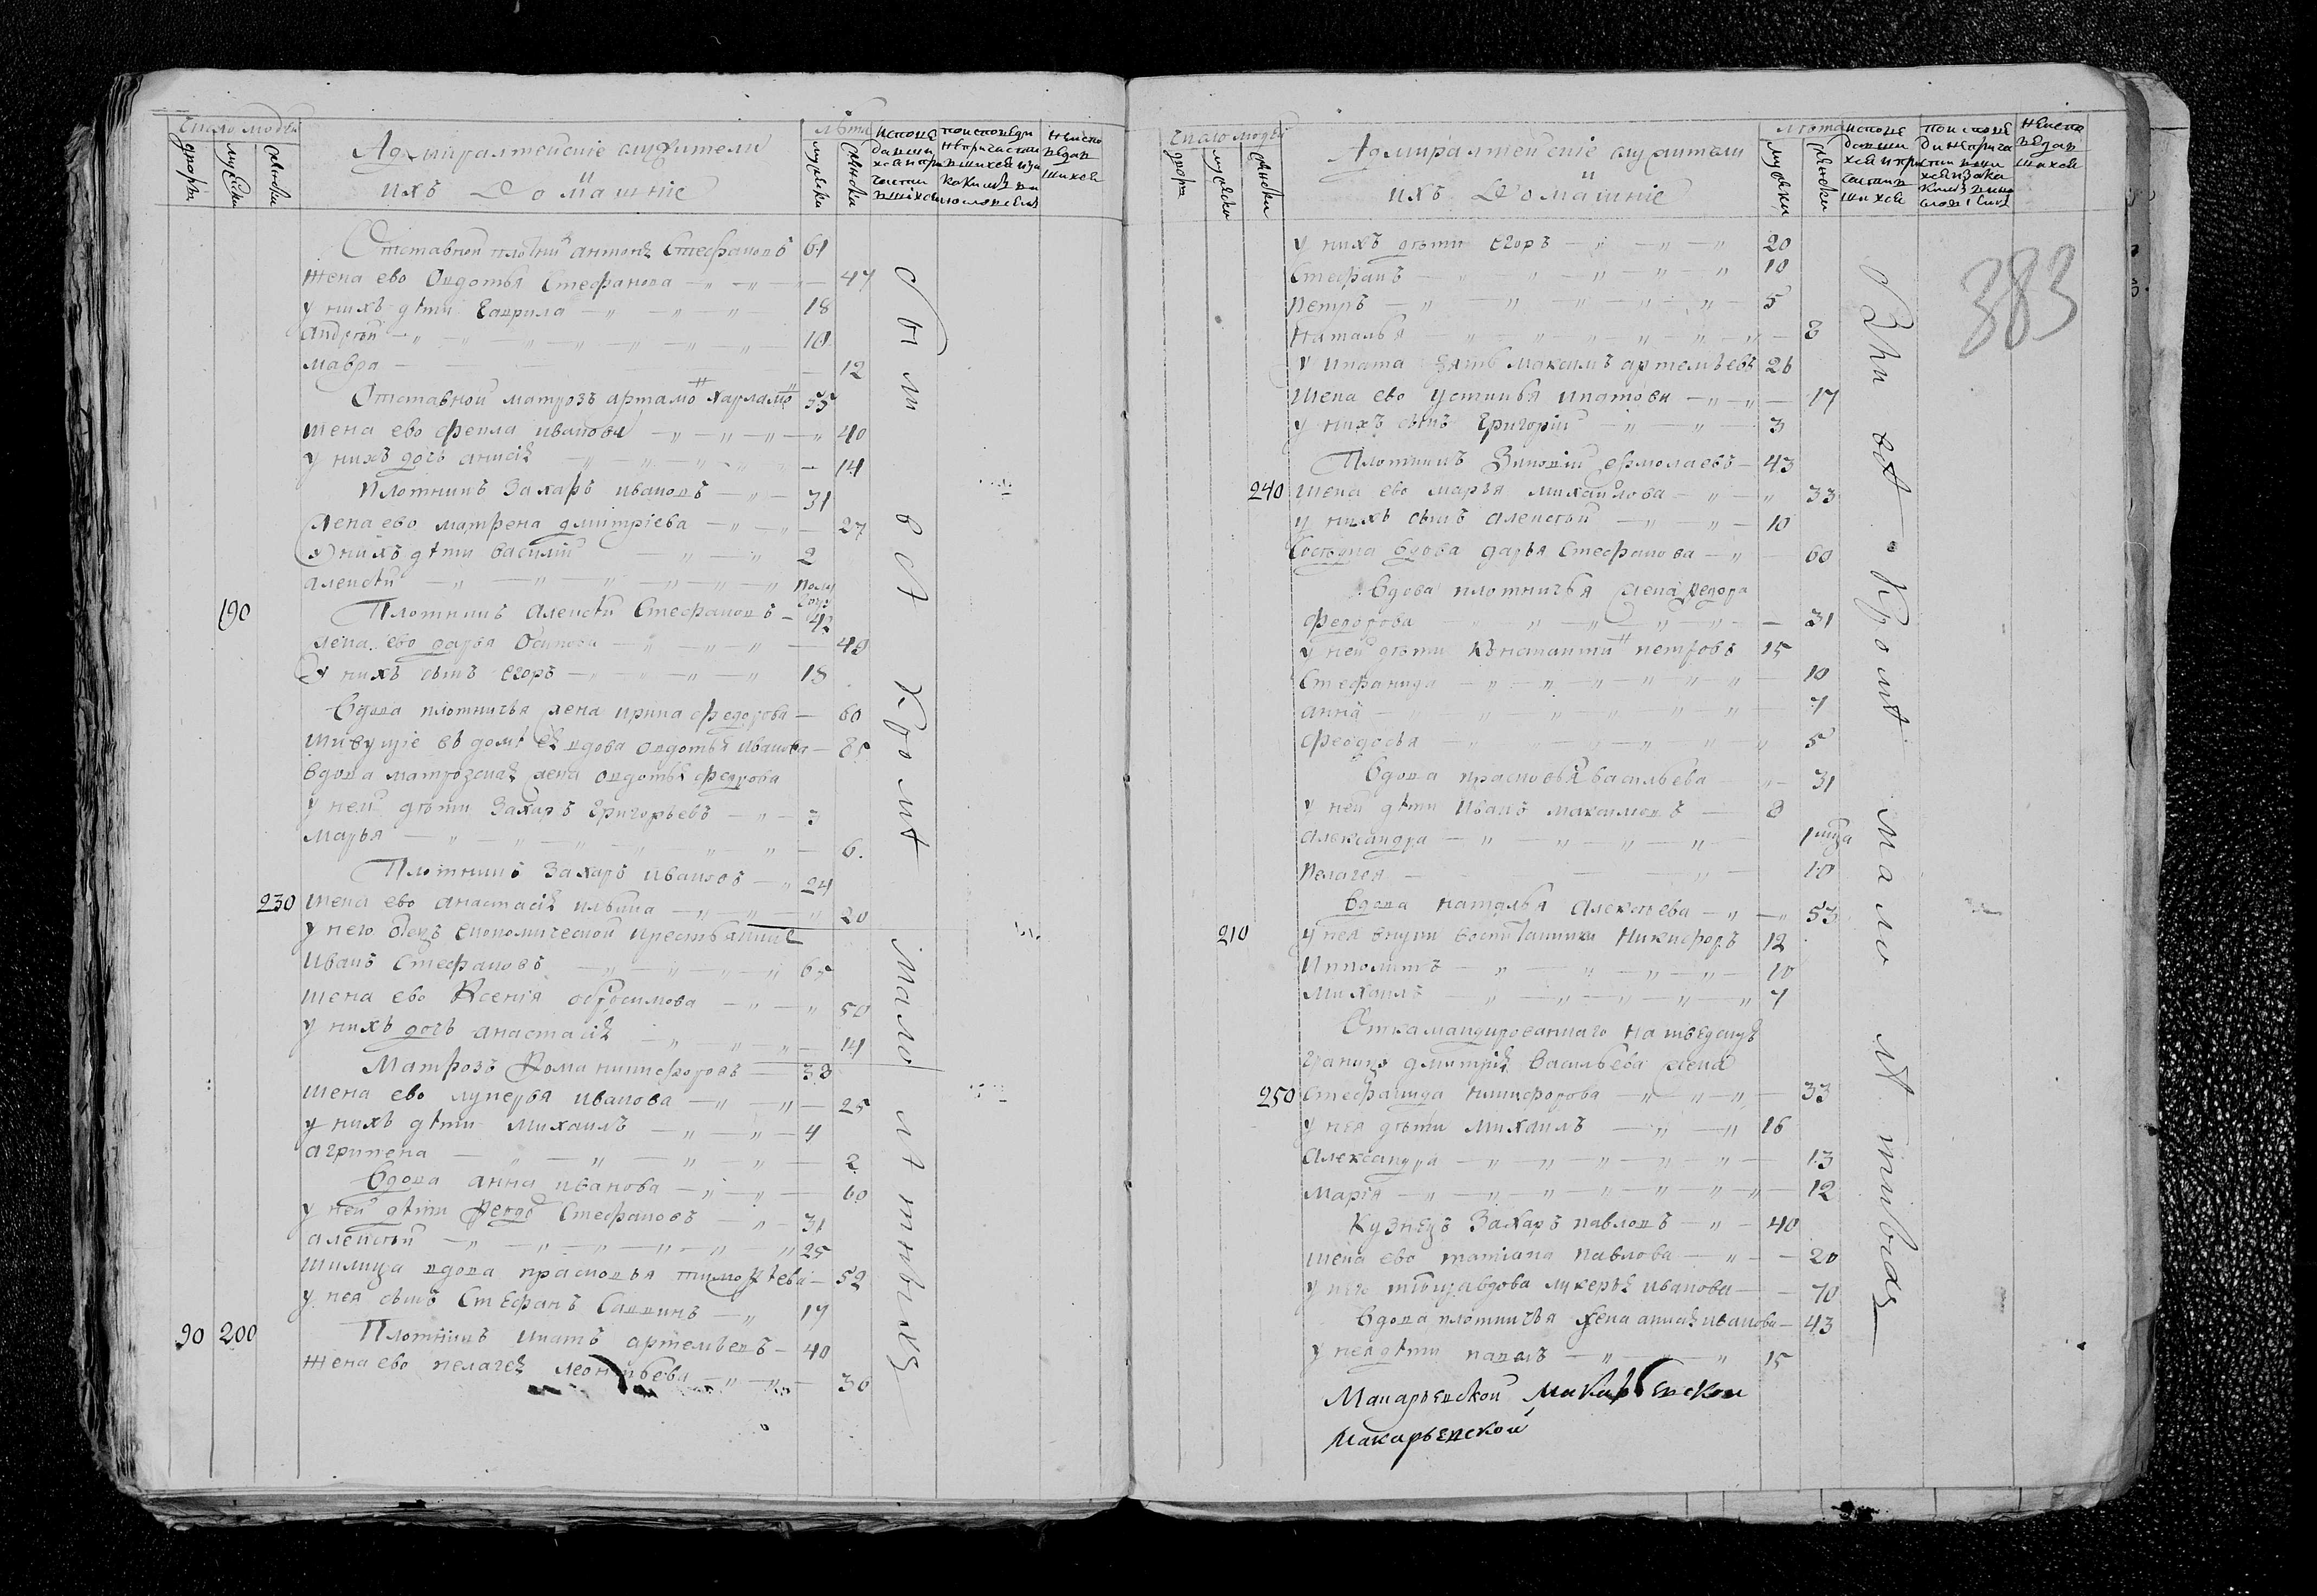 Число людей
дворы
мужеска
женска
Адмиралтейскіе служители
ихъ домашніе
лѣта
мужеска
женска
исповедавшихся и причастившихся
не исповедавшихся
Отставной плотник антонъ Стефановъ 61
жена ево Овдотья Стефанова 47
у нихъ дѣти Гаврила 18
Андрей 10
мавра 12
Отставной матрозъ артамо Харламо 55
жена ево фекла иванова 40
у нихъ дочь анисія 14
Плотникъ Захаръ ивановъ 31
жена ево матрена дмитріева 27
У нихъ дѣти василий 2
алексѣй полугоду
190 Плотникъ алексѣй Стефановъ 42
жена ево дарья Осипова 40
У нихъ сынъ егоръ 18
вдова плотничья жена ирина федорова 60
живущіе въ домѣ ея вдова овдотья иванова 85
вдова матрозская жена овдотья федорова
у ней дѣти Захаръ григорьевъ 3
марья 6
Плотникъ Захаръ ивановъ 24
230 жена ево анастасія ильина 20
у него отецъ економической крестьянинъ
иванъ Стефановъ 65
жена ево Ксенія обросимова 50
у нихъ дочь анастасія 14
Матрозъ Фома никифоровъ 33
жена ево лукерья иванова 25
у нихъ дѣти михаилъ 4
агрипена 2
вдова анна иванова 60
у ней дѣти Стефановъ 31
алексѣй 25
жилица вдова прасковья тимофѣева 52
у нея сынъ Стефанъ Саввинъ 17
90 200 Плотникъ ипатъ артемьевъ 40
жена ево пелагея леонтьева 30
были всѣ кромѣ малолѣтныхъ
Число людей
двора
мужеска
женска
Адмиралтейскіе служители
ихъ домашніе
лѣта
мужеска
женска
исповедавшихся и причастившихся
неисповедавшихся
383
у нихъ дѣти егоръ 20
Стефанъ 10
петръ 5
Наталья 8
у ипата зять максимъ артемьевъ 26
жена ево устинья ипатова 17
у нихъ сынъ григорій 3
Плотникъ Зиновій ермолаевъ 43
240 жена ево марья михайлова 33
у нихъ сынъ алексѣй 10
Соседка вдова дарья Стефанова 60
вдова плотничья жена федора
федорова 31
у ней дѣти константи петровъ 15
Стефанида 10
анна 7
феодосья 5
вдова прасковья васильева 31
у ней дѣти иванъ максимовъ 8
александра
Пелагея 10
вдова наталья алексѣева 53
210 у нея внуки воспитанники Никифоръ 12
Ипполитъ 10
михаилъ 7
Откамандированнаго на шведскую
границу дмитрія васильева жена
250 Стефанида никифорова 33
у нея дѣти михаилъ 16
александра 13
марія 12
Кузнецъ Захаръ павловъ 40
жена ево татіана павлова 20
у него теща вдова лукерья иванова 70
вдова плотничья жена анна иванова 43
у нея дѣти павелъ 15
Макарьевской Макарьевской
Макарьевской
всѣ Кромѣ малолѣтныхъ